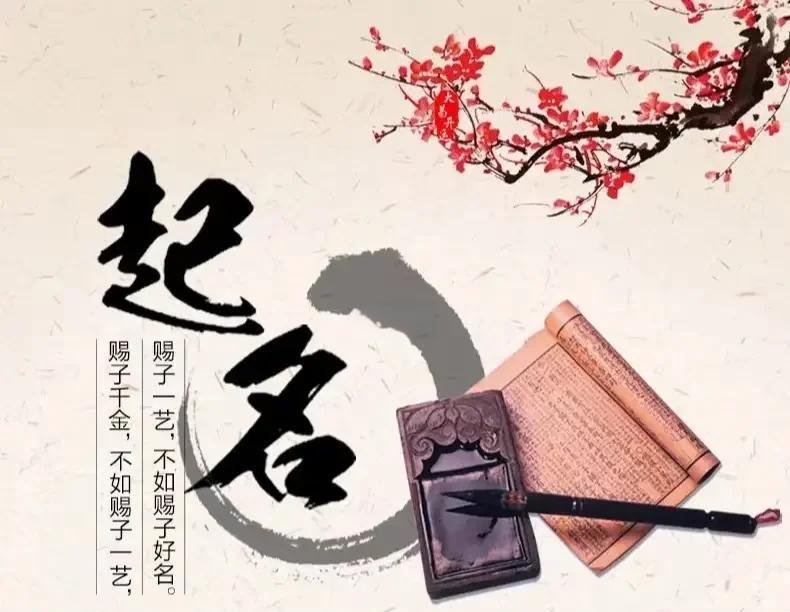 起名
赐子千金，不如赐子一艺，
赐子一艺，不如赐子好名。